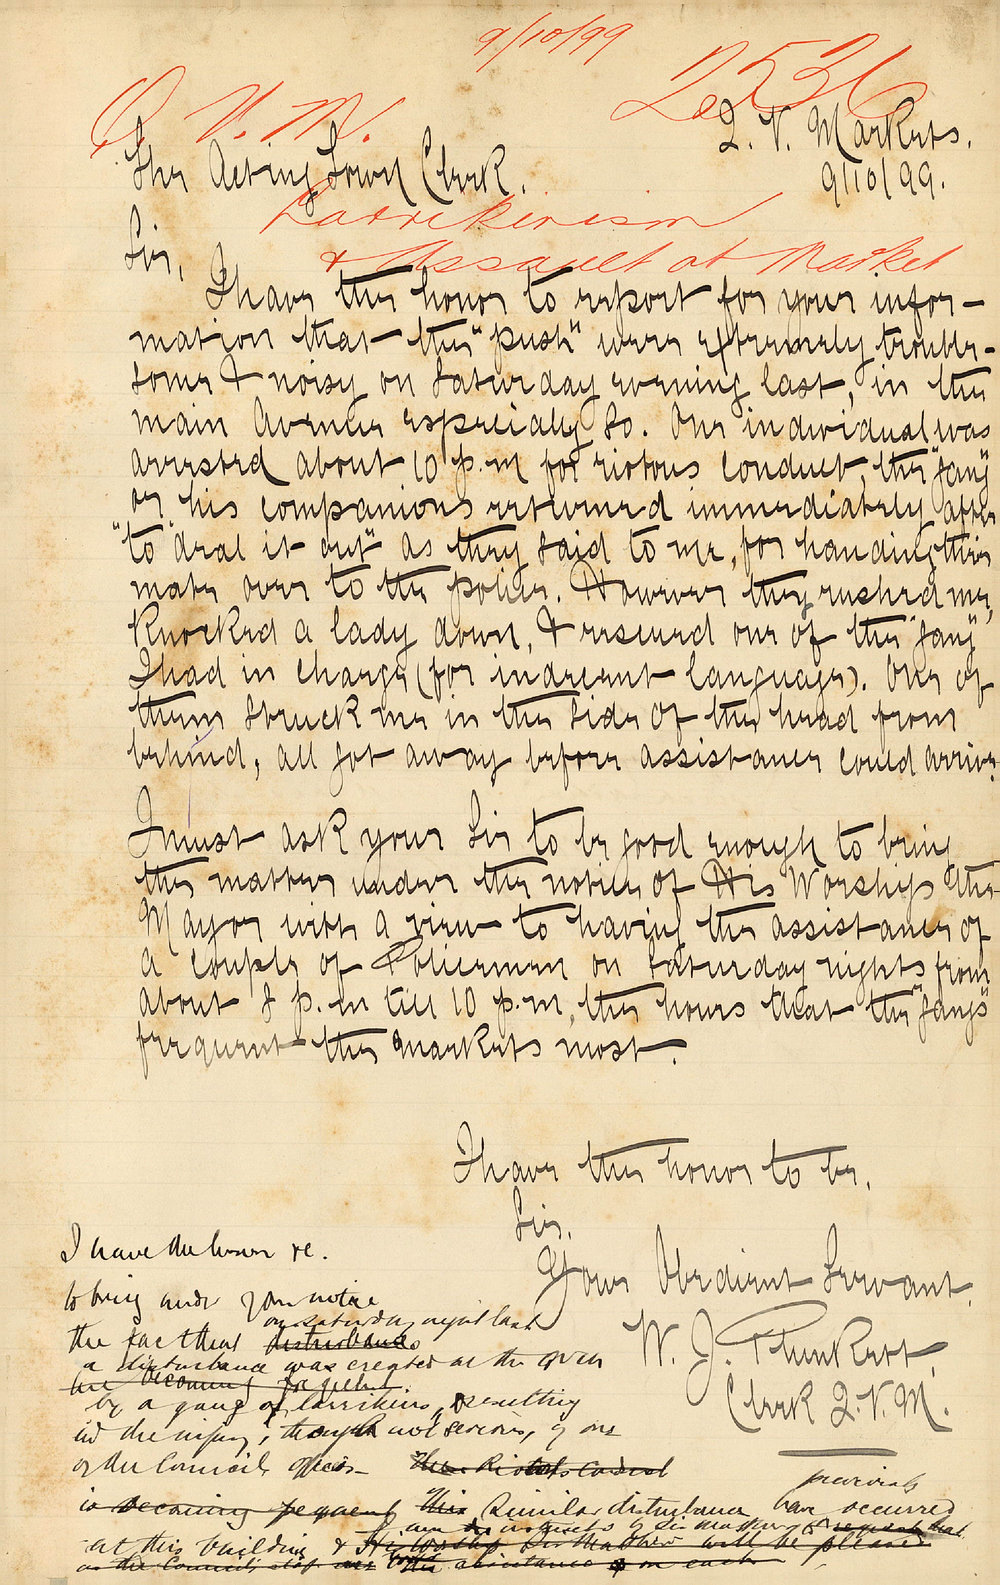 9/10/99
2536
Q. V. M.
Q. V. Markets.
9/10/99.
The Acting Town Clerk.
Larrikinism
& Assault at Market
Sir,
I have the honor to report for your infor-
mation that the "push" were extremely trouble-
some & noisy on Saturday evening last, in the
main Avenue especially so. One individual was
arrested about 10 p.m for riotous conduct, the "gang"
or his companions returned immediately after
"to deal it out" as they said to me, for handing their
mate over to the police. However they rushed me,
knocked a lady down, & rescued one of the "gang"
I had in charge (for indecent language). One of
them struck me in the side of the head from
behind, all got away before assistance could arrive.
I must ask you Sir to be good enough to bring
the matter under the notice of His Worship the
Mayor with a view to having the assistance of
a couple of Policemen on Saturday nights from
about 8 p.m till 10 p.m, the hours that the "gangs"
frequent the markets most.
I have the honor to be,
Sir,
Your Obedient Servant,
W. J. Plunkett,
Clerk Q.V.M.
I have the honor re.
to bring under your notice
on Saturday night last
the fact that disturbances
a disturbance was created at the Queen
are becoming frequent.
by a gang of larrikins, resulting
in the injury, though not serious, of one
of the Council's officers
is becoming frequent This Similar disturbances have occurred
previously
at this building & His Worship Sir Matthew will be pleased